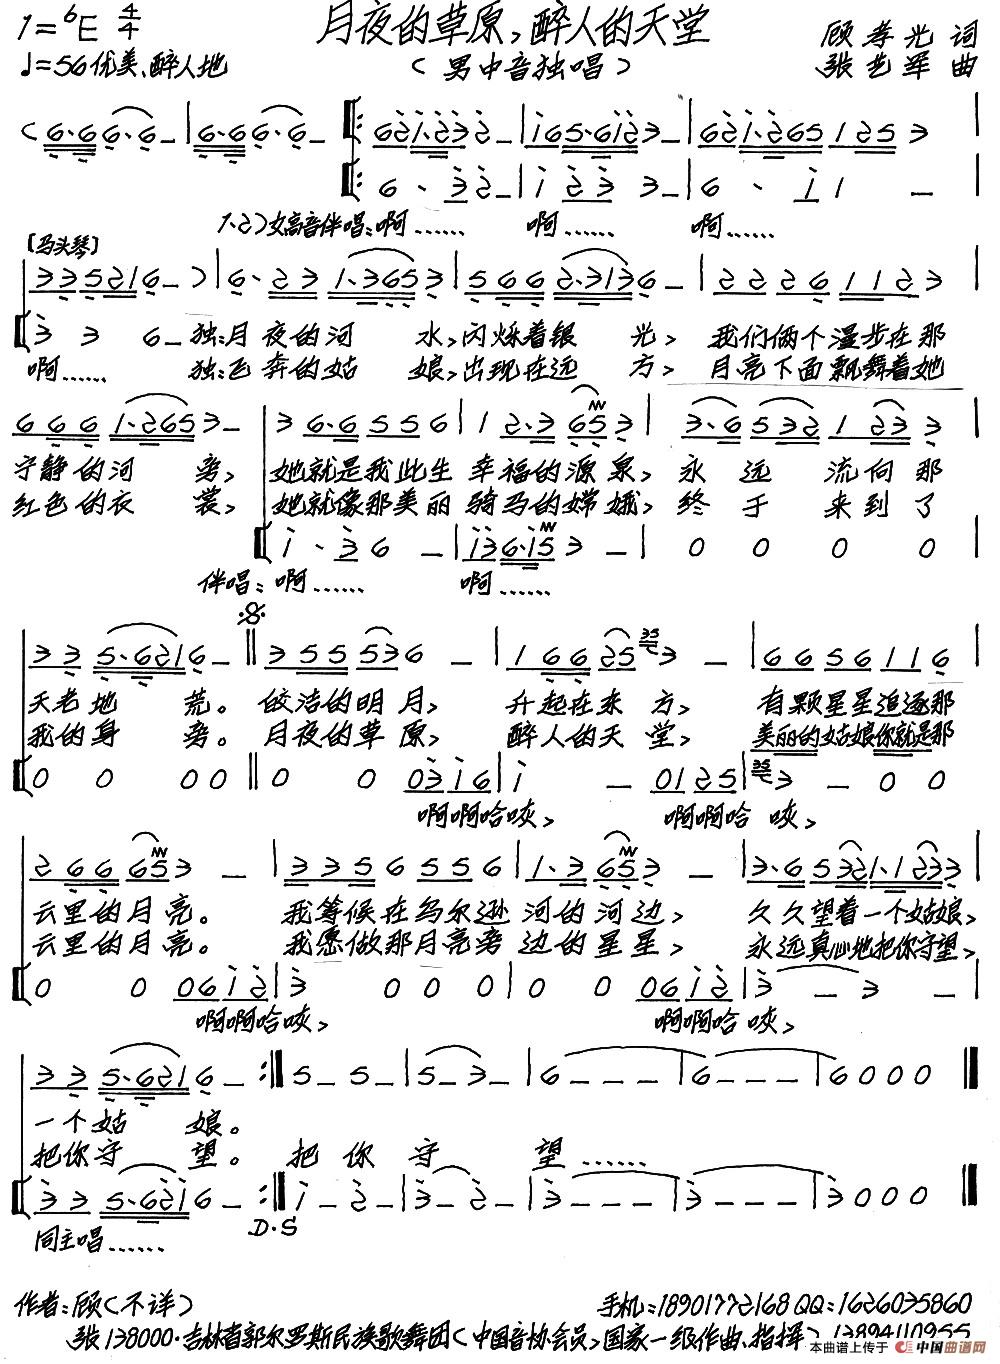 月夜的草原,醉人的天堂
(男中音独唱)
1=♭E 4/4
♩=56 优美、醉人地
顾孝光 词
张艺军 曲
(6·6 6·6 - | 6·6 6·6 - 62 1·2 3 2 - | 1 6 5·6 1 2 3 | 6 2 1·2 6 5 1 2 5 3 |
6 · 3 2 - | 1 2 3 3 - | 6 · 1 1 - |
1、2)女高音伴唱:啊…… 啊…… 啊……
[马头琴]
3 3 5 2 1 6 - ) | 6· 2 3 1·3 6 5 3 | 5 6 6 2·3 1 3 6 - | 2 2 2 6 1 1 2 3 |
3 3 6 - 独:月夜的河 水,闪烁着银 光, 我们俩个漫步在那
啊…… 独:飞奔的姑 娘,出现在远 方, 月亮下面飘舞着她
6 6 6 1·2 6 5 3 - | 3 6·6 5 5 6 | 1 2·3 6 5 3 | 3·6 5 3 2 1 2 3 3 |
宁静的河 旁, 她就是我此生 幸福的源泉, 永 远 流向那
红色的衣 裳, 她就像那美丽 骑马的嫦娥, 终 于 来到了
1 · 3 6 - | 1 3 6·1 5 3 - | 0 0 0 0 |
伴唱:啊…… 啊……
3 3 5·6 2 1 6 - || 3 5 5 5 3 6 - | 1 6 6 2 5 3 - | 6 6 5 6 1 1 6 |
天老地 荒。 皎洁的明月, 升起在东方, 有颗星星追逐那
我的身 旁。 月夜的草原, 醉人的天堂, 美丽的姑娘你就是那
0 0 0 0 || 0 0 0 3 1 6 | 1 - 0 1 2 5 | 3 - 0 0 |
啊啊哈咴, 啊啊哈咴,
2 6 6 6 5 3 - | 3 3 5 6 5 5 6 | 1·3 6 5 3 - | 3·6 5 3 2 1·1 2 3 3 |
云里的月亮。 我等候在乌尔逊 河的河边, 久久望着一个姑娘,
云里的月亮。 我愿做那月亮旁 边的星星, 永远真心地把你守望,
0 0 0 6 1 2 | 3 0 0 0 | 0 0 0 6 1 2 | 3 - 3 - |
啊啊哈咴, 啊啊哈咴,
3 3 5·6 2 1 6 - :|| 5 - 5 - | 5 - 3 - | 6 - - - | 6 - - - | 6 0 0 0 ||
一个姑 娘。
把你守 望。 把你守 望……
3 3 5·6 2 1 6 - :|| 1 - 2 - | 3 - 2 - | 3 - - - | 3 - - - | 3 0 0 0 ||
D·S
同主唱……
作者:顾(不详) 手机=18901772168 QQ=1626035860
张 138000·吉林省郭尔罗斯民族歌舞团(中国音协会员,国家一级作曲、指挥)13894110955
本曲谱上传于 中国曲谱网